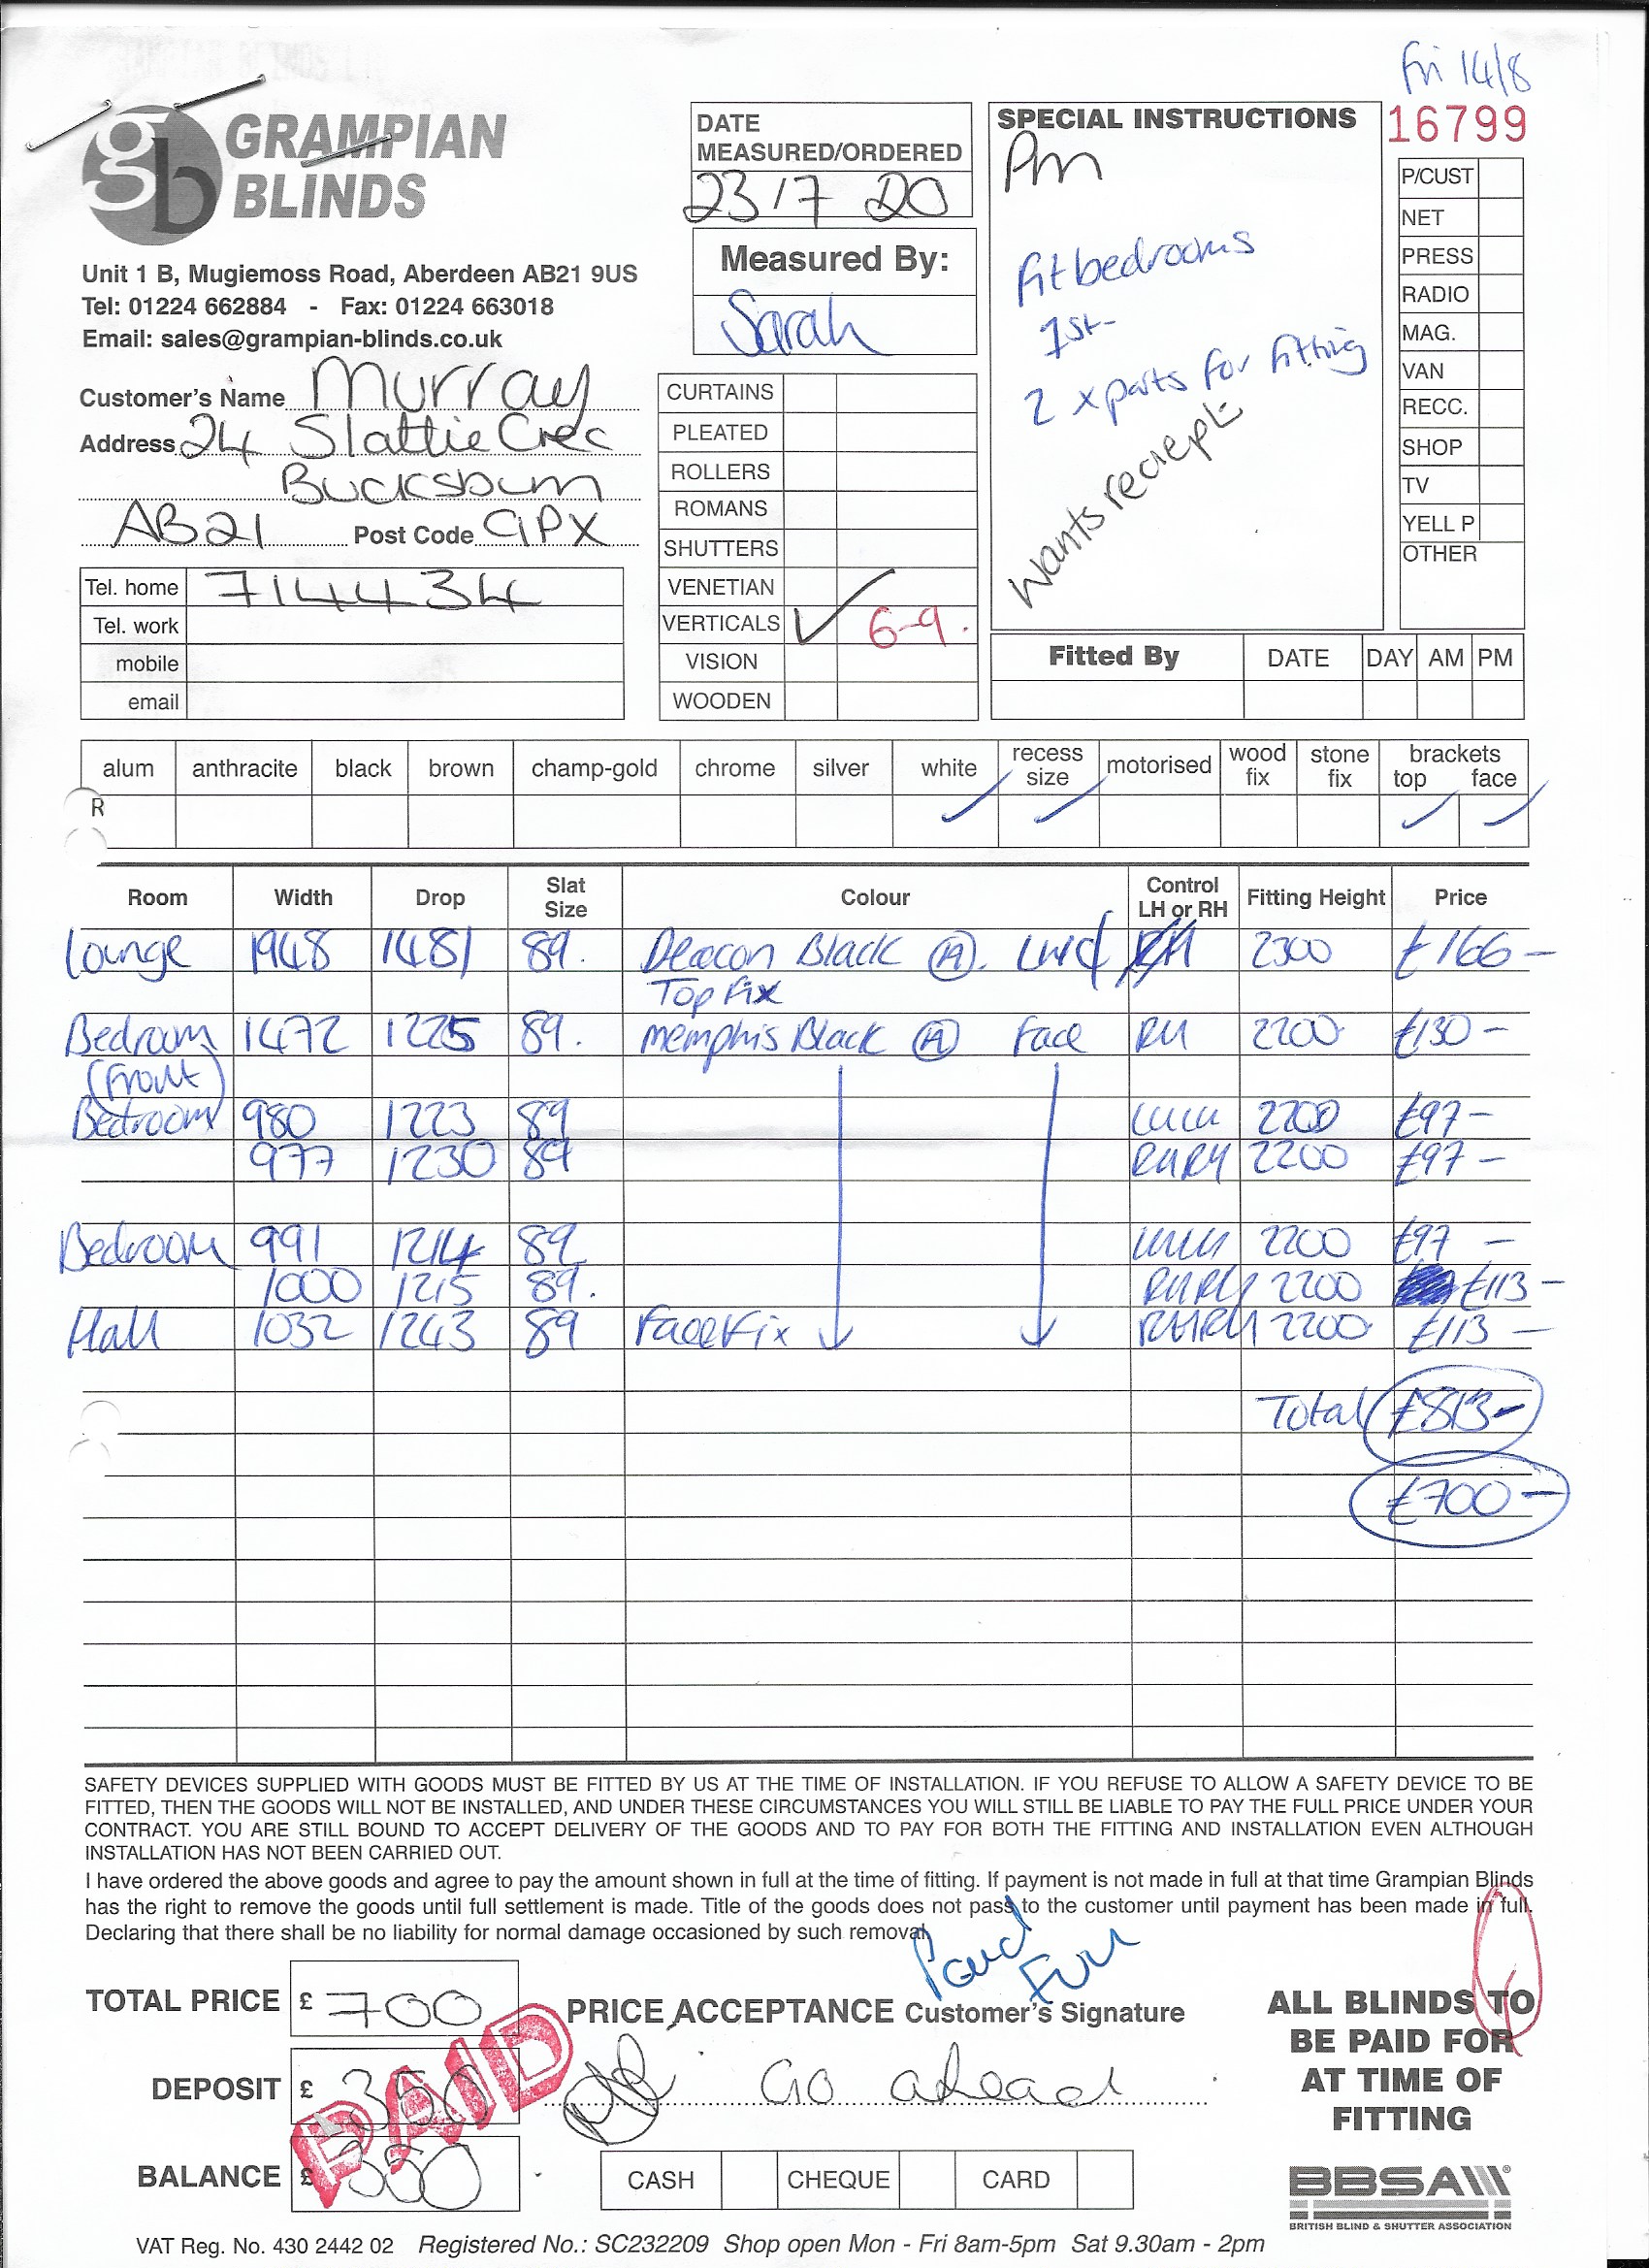 Fri 14/8
GRAMPIAN
BLINDS
Unit 1 B, Mugiemoss Road, Aberdeen AB21 9US
Tel: 01224 662884 - Fax: 01224 663018
Email: sales@grampian-blinds.co.uk
Customer's Name Murray
Address 24 Slattie Cres
Bucksburn
AB21 Post Code 9PX
Tel. home 714434
Tel. work
mobile
email
DATE
MEASURED/ORDERED
23/7 20
Measured By:
Sarah
CURTAINS
PLEATED
ROLLERS
ROMANS
SHUTTERS
VENETIAN
VERTICALS ✓ 6-9.
VISION
WOODEN
SPECIAL INSTRUCTIONS
Pm
Fit bedrooms
1st-
2 x parts for fitting
Wants reciept
16799
P/CUST
NET
PRESS
RADIO
MAG.
VAN
RECC.
SHOP
TV
YELL P
OTHER
Fitted By DATE DAY AM PM
alum anthracite black brown champ-gold chrome silver white recess size motorised wood fix stone fix brackets top face
R ✓ ✓ ✓ ✓
Room Width Drop Slat Size Colour Control LH or RH Fitting Height Price
Lounge 1948 1481 89. Deacon Black (A). 2300 £166-
Top Fix
Bedroom 1472 1225 89. Memphis Black (A) Face RH 2200 £130-
(Front)
Bedroom 980 1223 89 LHLH 2200 £97-
977 1230 89 RHRH 2200 £97-
Bedroom 991 1214 89 LHLH 2200 £97-
1000 1215 89. RHRH 2200 £113-
Hall 1032 1243 89 Face Fix RHRH 2200 £113-
Total £813-
£700-
SAFETY DEVICES SUPPLIED WITH GOODS MUST BE FITTED BY US AT THE TIME OF INSTALLATION. IF YOU REFUSE TO ALLOW A SAFETY DEVICE TO BE
FITTED, THEN THE GOODS WILL NOT BE INSTALLED, AND UNDER THESE CIRCUMSTANCES YOU WILL STILL BE LIABLE TO PAY THE FULL PRICE UNDER YOUR
CONTRACT. YOU ARE STILL BOUND TO ACCEPT DELIVERY OF THE GOODS AND TO PAY FOR BOTH THE FITTING AND INSTALLATION EVEN ALTHOUGH
INSTALLATION HAS NOT BEEN CARRIED OUT.
I have ordered the above goods and agree to pay the amount shown in full at the time of fitting. If payment is not made in full at that time Grampian Blinds
has the right to remove the goods until full settlement is made. Title of the goods does not pass to the customer until payment has been made in full.
Declaring that there shall be no liability for normal damage occasioned by such removal
Paid
Full
TOTAL PRICE £ 700
DEPOSIT £ 350
BALANCE £ 350
PAID
PRICE ACCEPTANCE Customer's Signature
Go ahead
CASH CHEQUE CARD
ALL BLINDS TO
BE PAID FOR
AT TIME OF
FITTING
BBSA
BRITISH BLIND & SHUTTER ASSOCIATION
VAT Reg. No. 430 2442 02 Registered No.: SC232209 Shop open Mon - Fri 8am-5pm Sat 9.30am - 2pm